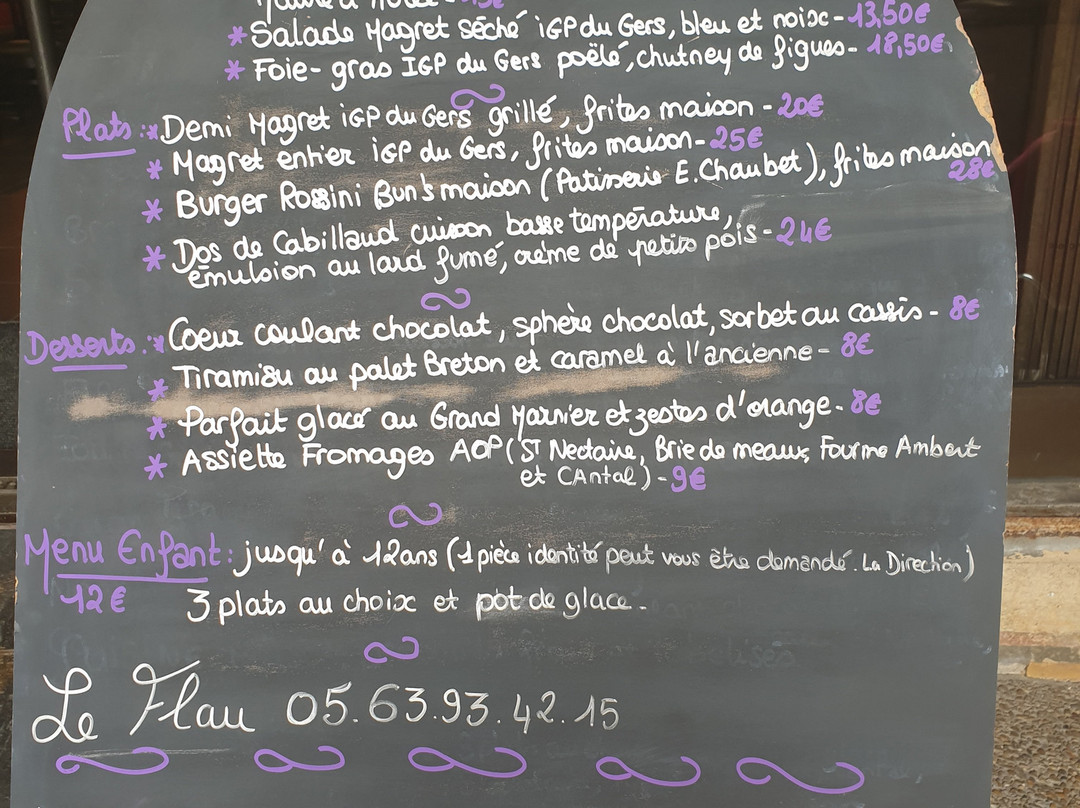 *Salade Magret séché iGP du Gers, bleu et noix-13,50€
* Foie-gras IGP du Gers poêlé, chutney de figues- 18,50€
Plats:*Demi Magret iGP du Gers grillé, frites maison - 20€
* Magret entier iGP du Gers, frites maison-25€
* Burger Rossini Bun's maison (Patisserie E.Chaubet), frites maison
28€
* Dos de Cabillaud cuisson basse température,
émulsion au lard fumé, crème de petits pois-24€
Desserts:*Coeur coulant chocolat, sphère chocolat, sorbet au cassis- 8€
* Tiramisu au palet Breton et caramel à l'ancienne- 8€
* Parfait glacé au Grand Marnier et zestes d'orange-8€
* Assiette Fromages AOP (ST Nectaire, Brie de meaux, Fourme Ambert
et CAntal)-9€
Menu Enfant: jusqu'à 12ans (1 pièce identité peut vous être demandé. La Direction)
12€ 3 plats au choix et pot de glace.
Le Flau 05.63.93.42.15